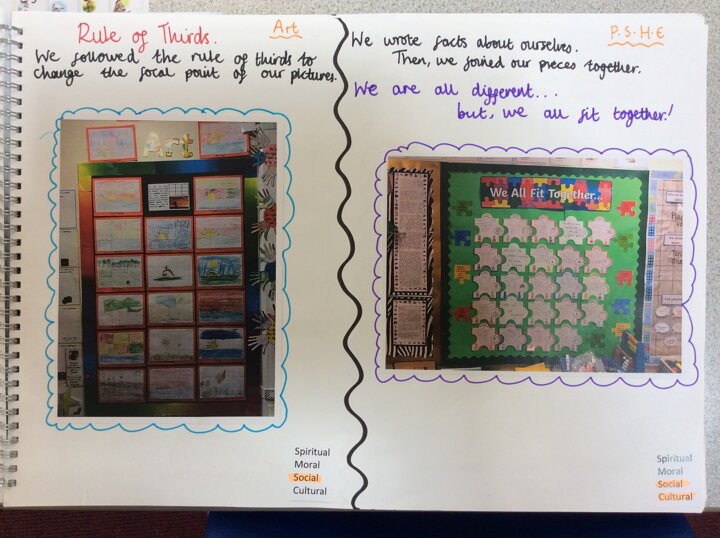 Rule of Thirds.
Art
We followed the rule of thirds to
change the focal point of our pictures.
Art
Spiritual
Moral
Social
Cultural
P.S.H.E
We wrote facts about ourselves.
Then, we joined our pieces together.
We are all different...
but, we all fit together!
We All Fit Together...
Spiritual
Moral
Social
Cultural